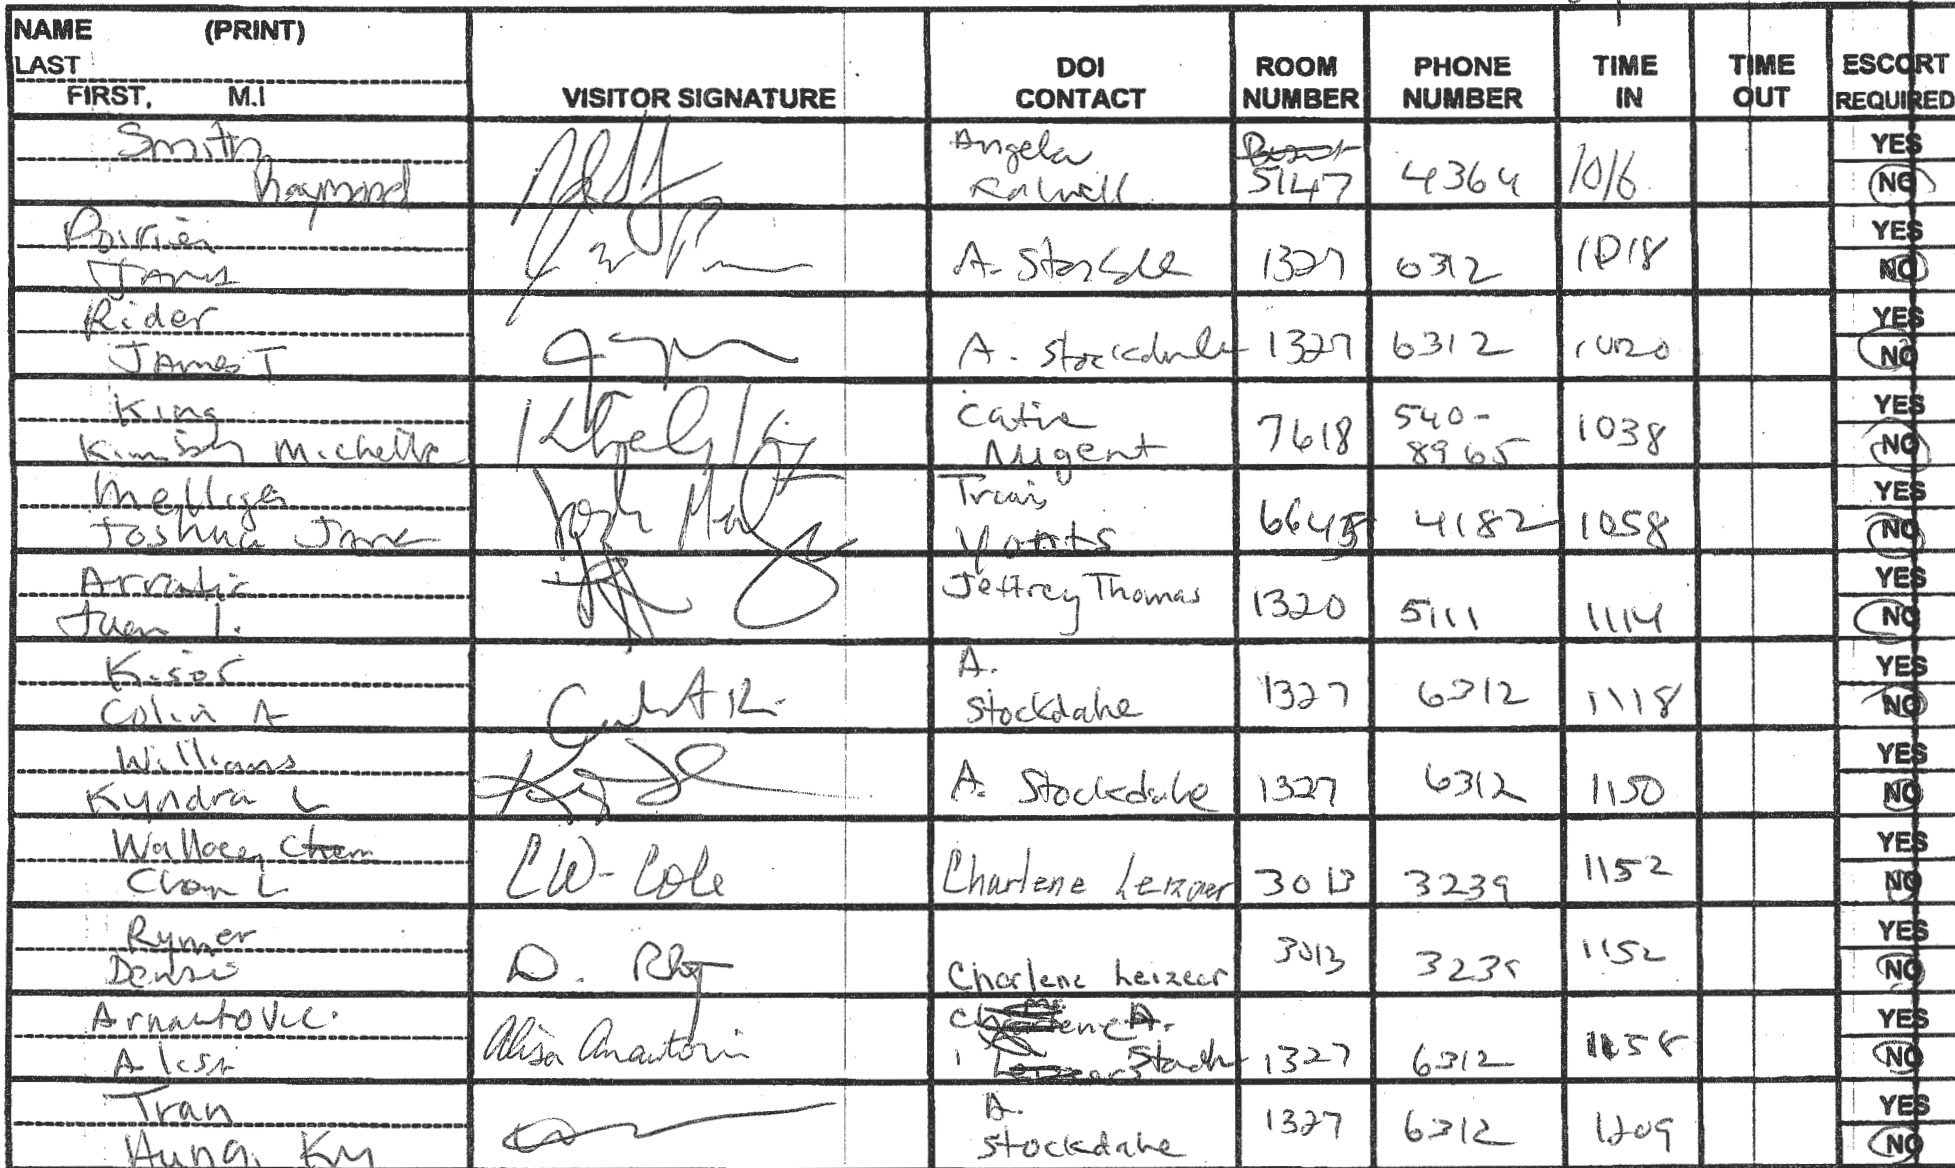 NAME (PRINT)
LAST
FIRST, M.I
VISITOR SIGNATURE
DOI CONTACT
ROOM NUMBER
PHONE NUMBER
TIME IN
TIME OUT
ESCORT REQUIRED
Smith
Raymond
Angela
5147 4364 1016
YES
NO
Poirier
James
A. 1327 6312 1018
YES
NO
Rider
James T
A. Stockdale 1327 6312 1020
YES
NO
King
Kimberly Michelle
Catie
Nugent
7618
540-
8965
1038
YES
NO
Joshua
Josh
Travis
Yonts
4182 1058
YES
NO
Juan I.
Jeffrey Thomas
1320 5111 1114
YES
NO
Kisor
Colin A
A.
Stockdale
1327 6312 1118
YES
NO
Williams
Kyndra L
A. Stockdale 1327 6312 1150
YES
NO
Wallace,
Chan L
CW-Cole
Charlene Leizear 3013 3239 1152
YES
NO
Rymer
D.
Charlene Leizear
3013 3239 1152
YES
NO
Arnautovic
Alisa Arnautovic
A.
1327 6312 1158
YES
NO
Tran
Hung, Ky
A.
Stockdale
1327 6312 1209
YES
NO